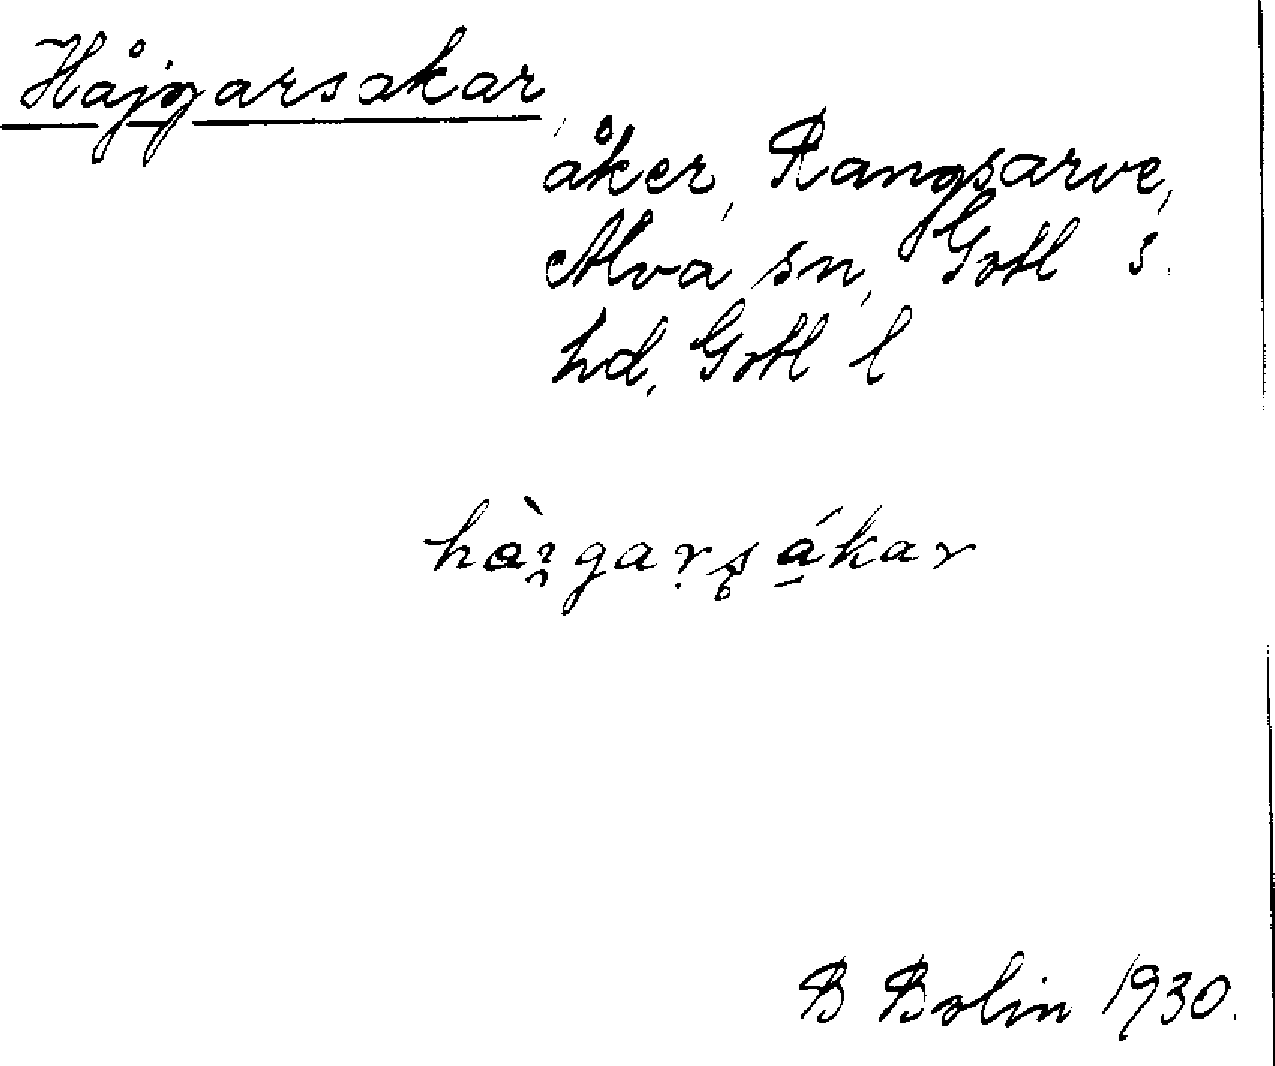 Håjgarsakar,
åker, Rangsarve,
Alva sn, Gotl s.
hd, Gotl l
B Bolin 1930.